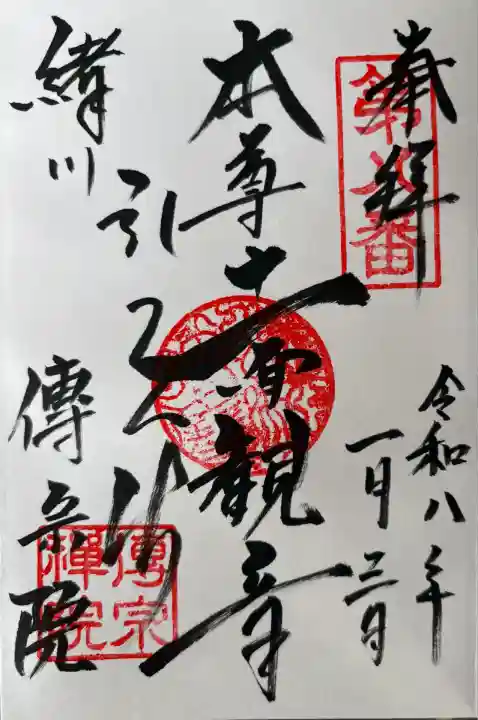 奉拝
令和八年
一月三日
本尊十一面観音
引
緒川
傳宗院
第 番
傳宗
禪院